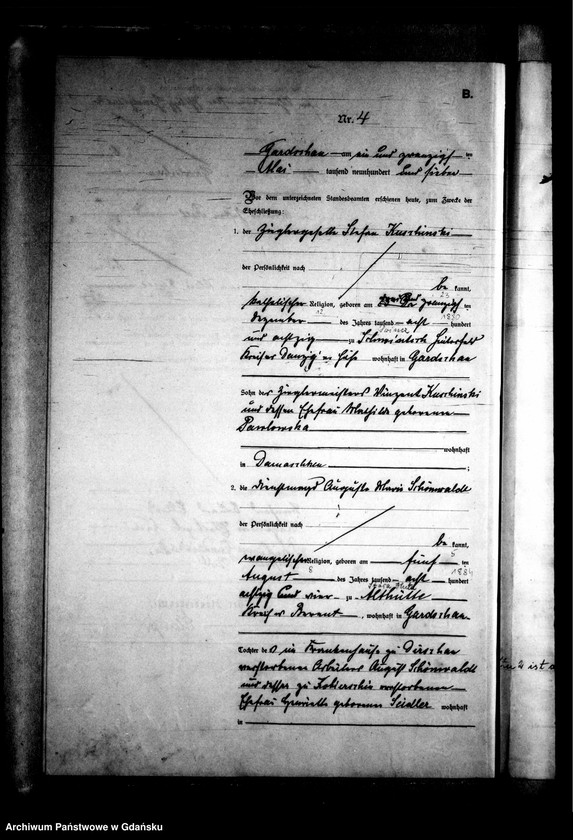 B.
Nr. 4
Gardschau am ein und zwanzigs ten
Mai tausend neunhundert und sieben
Vor dem unterzeichneten Standesbeamten erschienen heute, zum Zwecke der
Eheschließung:
1. der Zieglergeselle Stefan Kuszbinski
der Persönlichkeit nach
be kannt,
katholischer Religion, geboren am zwanzigs ten
23
Dezember des Jahres tausend acht hundert
12 1880
und achtzig zu Schwintsch
Kreises Danziger Höhe wohnhaft in Gardschau
Sohn des Zieglermeisters Vinzent Kuszbinski
und dessen Ehefrau Mathilde geborenen
Pawlowska
wohnhaft
in Damaschken ;
2. die Dienstmagd Auguste Marie Schönwaldt
der Persönlichkeit nach
be kannt,
evangelischer Religion, geboren am fünf ten
5
August des Jahres tausend acht hundert
8 1884
achtzig und vier zu Althütte
Stara Huta
Kreises Berent , wohnhaft in Gardschau
Tochter des im Krankenhause zu Dirschau
verstorbenen Arbeiters August Schönwaldt
und dessen zu verstorbenen
Ehefrau geborenen Seidler wohnhaft
in
ist
Archiwum Państwowe w Gdańsku